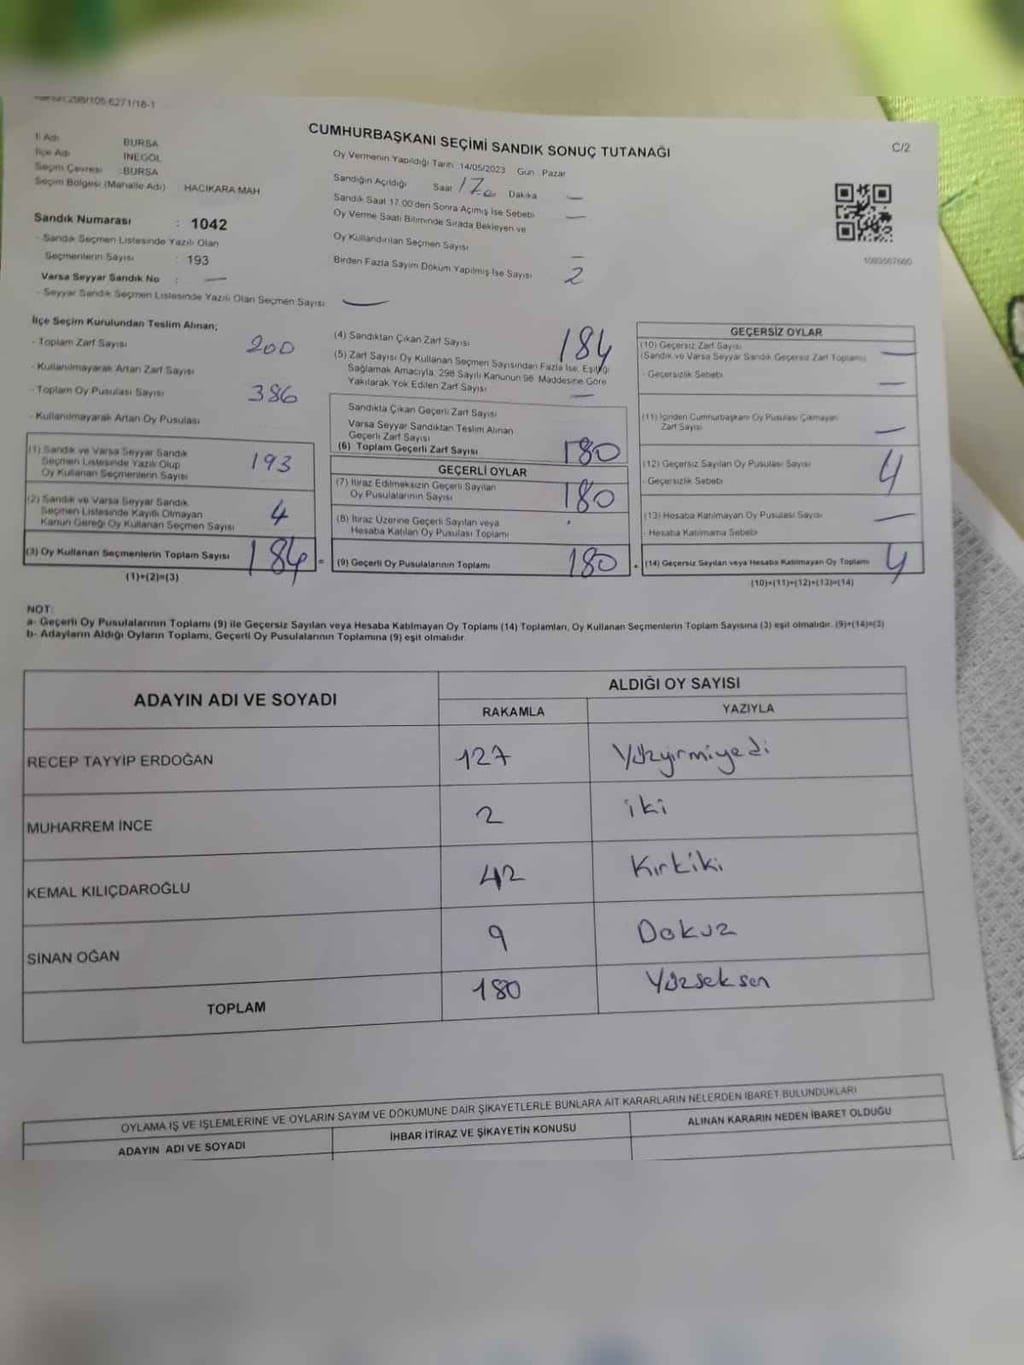 CUMHURBAŞKANI SEÇİMİ SANDIK SONUÇ TUTANAĞI
C/2
İl Adı BURSA
İlçe Adı İNEGÖL
Seçim Çevresi : BURSA
Seçim Bölgesi (Mahalle Adı) HACIKARA MAH
Sandık Numarası : 1042
- Sandık Seçmen Listesinde Yazılı Olan
Seçmenlerin Sayısı : 193
Varsa Seyyar Sandık No : —
- Seyyar Sandık Seçmen Listesinde Yazılı Olan Seçmen Sayısı —
Oy Vermenin Yapıldığı Tarih : 14/05/2023 Gün : Pazar
Sandığın Açıldığı Saat 17.00 Dakika —
Sandık Saat 17.00'den Sonra Açılmış İse Sebebi —
Oy Verme Saati Bitiminde Sırada Bekleyen ve
Oy Kullandırılan Seçmen Sayısı —
Birden Fazla Sayım Döküm Yapılmış İse Sayısı 2
İlçe Seçim Kurulundan Teslim Alınan;
- Toplam Zarf Sayısı 200
- Kullanılmayarak Artan Zarf Sayısı
- Toplam Oy Pusulası Sayısı 386
- Kullanılmayarak Artan Oy Pusulası
(1) Sandık ve Varsa Seyyar Sandık
Seçmen Listesinde Yazılı Olup
Oy Kullanan Seçmenlerin Sayısı 193
(2) Sandık ve Varsa Seyyar Sandık
Seçmen Listesinde Kayıtlı Olmayan
Kanun Gereği Oy Kullanan Seçmen Sayısı 4
(3) Oy Kullanan Seçmenlerin Toplam Sayısı 184 =
(1)+(2)=(3)
(4) Sandıktan Çıkan Zarf Sayısı 184
(5) Zarf Sayısı Oy Kullanan Seçmen Sayısından Fazla İse, Eşitliği
Sağlamak Amacıyla, 298 Sayılı Kanunun 98. Maddesine Göre
Yakılarak Yok Edilen Zarf Sayısı —
Sandıkta Çıkan Geçerli Zarf Sayısı
Varsa Seyyar Sandıktan Teslim Alınan
Geçerli Zarf Sayısı
(6) Toplam Geçerli Zarf Sayısı 180
GEÇERLİ OYLAR
(7) İtiraz Edilmeksizin Geçerli Sayılan
Oy Pusulalarının Sayısı 180
(8) İtiraz Üzerine Geçerli Sayılan veya
Hesaba Katılan Oy Pusulası Toplamı
(9) Geçerli Oy Pusulalarının Toplamı 180
GEÇERSİZ OYLAR
(10) Geçersiz Zarf Sayısı
(Sandık ve Varsa Seyyar Sandık Geçersiz Zarf Toplamı) —
- Geçersizlik Sebebi —
(11) İçinden Cumhurbaşkanı Oy Pusulası Çıkmayan
Zarf Sayısı —
(12) Geçersiz Sayılan Oy Pusulası Sayısı 4
- Geçersizlik Sebebi
(13) Hesaba Katılmayan Oy Pusulası Sayısı —
- Hesaba Katılmama Sebebi
(14) Geçersiz Sayılan veya Hesaba Katılmayan Oy Toplamı 4
(10)+(11)+(12)+(13)=(14)
NOT:
a- Geçerli Oy Pusulalarının Toplamı (9) ile Geçersiz Sayılan veya Hesaba Katılmayan Oy Toplamı (14) Toplamları, Oy Kullanan Seçmenlerin Toplam Sayısına (3) eşit olmalıdır. (9)+(14)=(3)
b- Adayların Aldığı Oyların Toplamı, Geçerli Oy Pusulalarının Toplamına (9) eşit olmalıdır.
ADAYIN ADI VE SOYADI
ALDIĞI OY SAYISI
RAKAMLA YAZIYLA
RECEP TAYYİP ERDOĞAN 127 Yüzyirmiyedi
MUHARREM İNCE 2 iki
KEMAL KILIÇDAROĞLU 42 Kırkiki
SİNAN OĞAN 9 Dokuz
TOPLAM 180 Yüzseksen
OYLAMA İŞ VE İŞLEMLERİNE VE OYLARIN SAYIM VE DÖKÜMÜNE DAİR ŞİKAYETLERLE BUNLARA AİT KARARLARIN NELERDEN İBARET BULUNDUKLARI
ADAYIN ADI VE SOYADI İHBAR İTİRAZ VE ŞİKAYETİN KONUSU ALINAN KARARIN NEDEN İBARET OLDUĞU